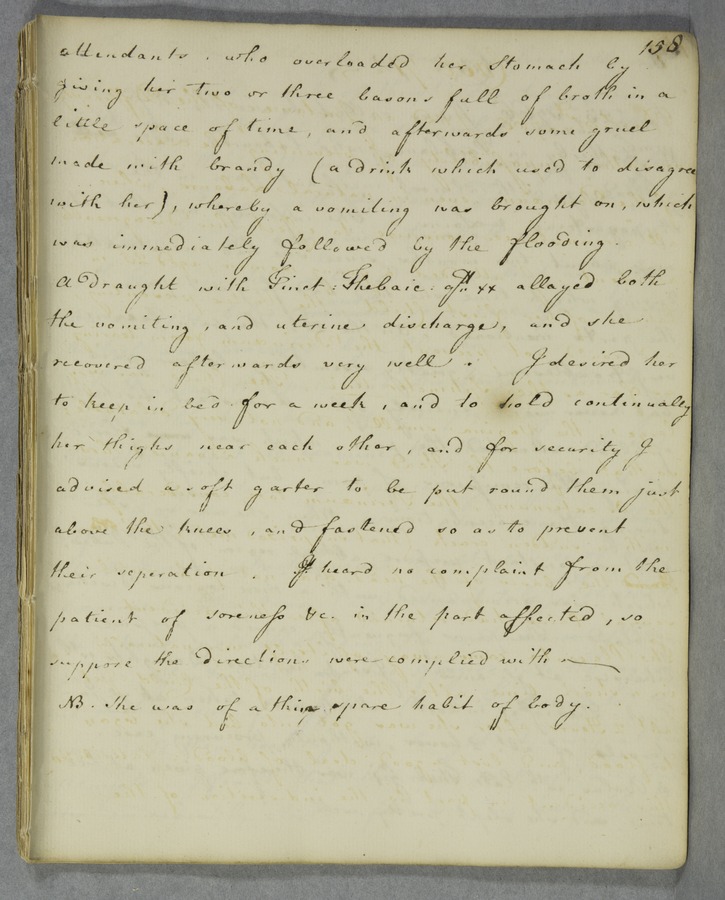 158
attendants, who overloaded her stomach by
giving her two or three basons full of broth in a
little space of time, and afterwards some gruel
made with brandy (a drink which used to disagree
with her), whereby a vomiting was brought on, which
was immediately followed by the flooding.
A Draught with Tinct: Thebaic: gtt. xx allayed both
the vomiting, and uterine discharge, and she
recovered afterwards very well. I desired her
to keep in bed for a week, and to hold continually
her thighs near each other, and for security I
advised a soft garter to be put round them just
above the knees, and fastened so as to prevent
their seperation. I heard no complaint from the
patient of soreness &c. in the part affected, so
suppose the directions were complied with
NB. She was of a thin spare habit of body.